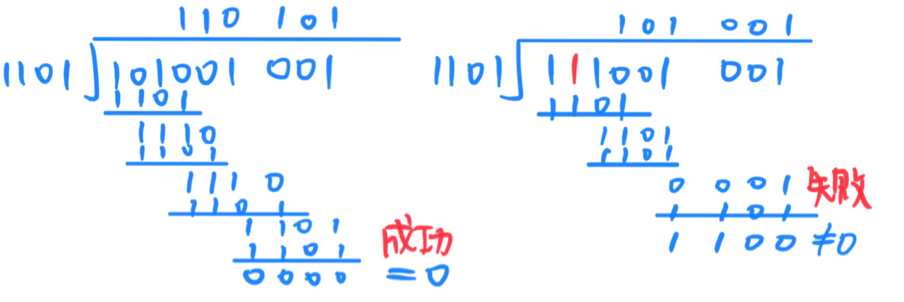 110 101
1101 101001 001
1101
1110
1101
1110
1101
1101
1101 成功
0000 = 0
101 001
1101 111001 001
1101
1101
1101
0 001 失败
1 101
1 100 ≠0